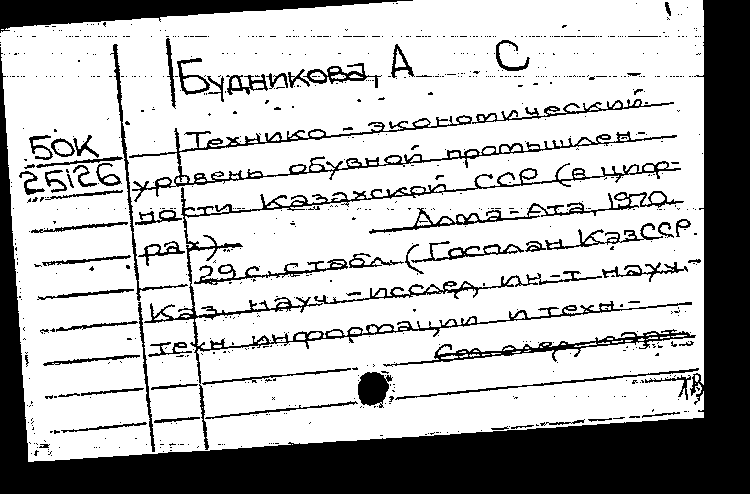 Будникова, А С
50К
25126
Технико-экономический
уровень обувной промышлен-
ности Казахской ССР (в циф-
рах).
Алма-Ата, 1970
29 с. с табл. (Госплан КазССР.
Каз. науч.-исслед. ин-т науч.-
техн. информации и техн.-
См. след. карт.